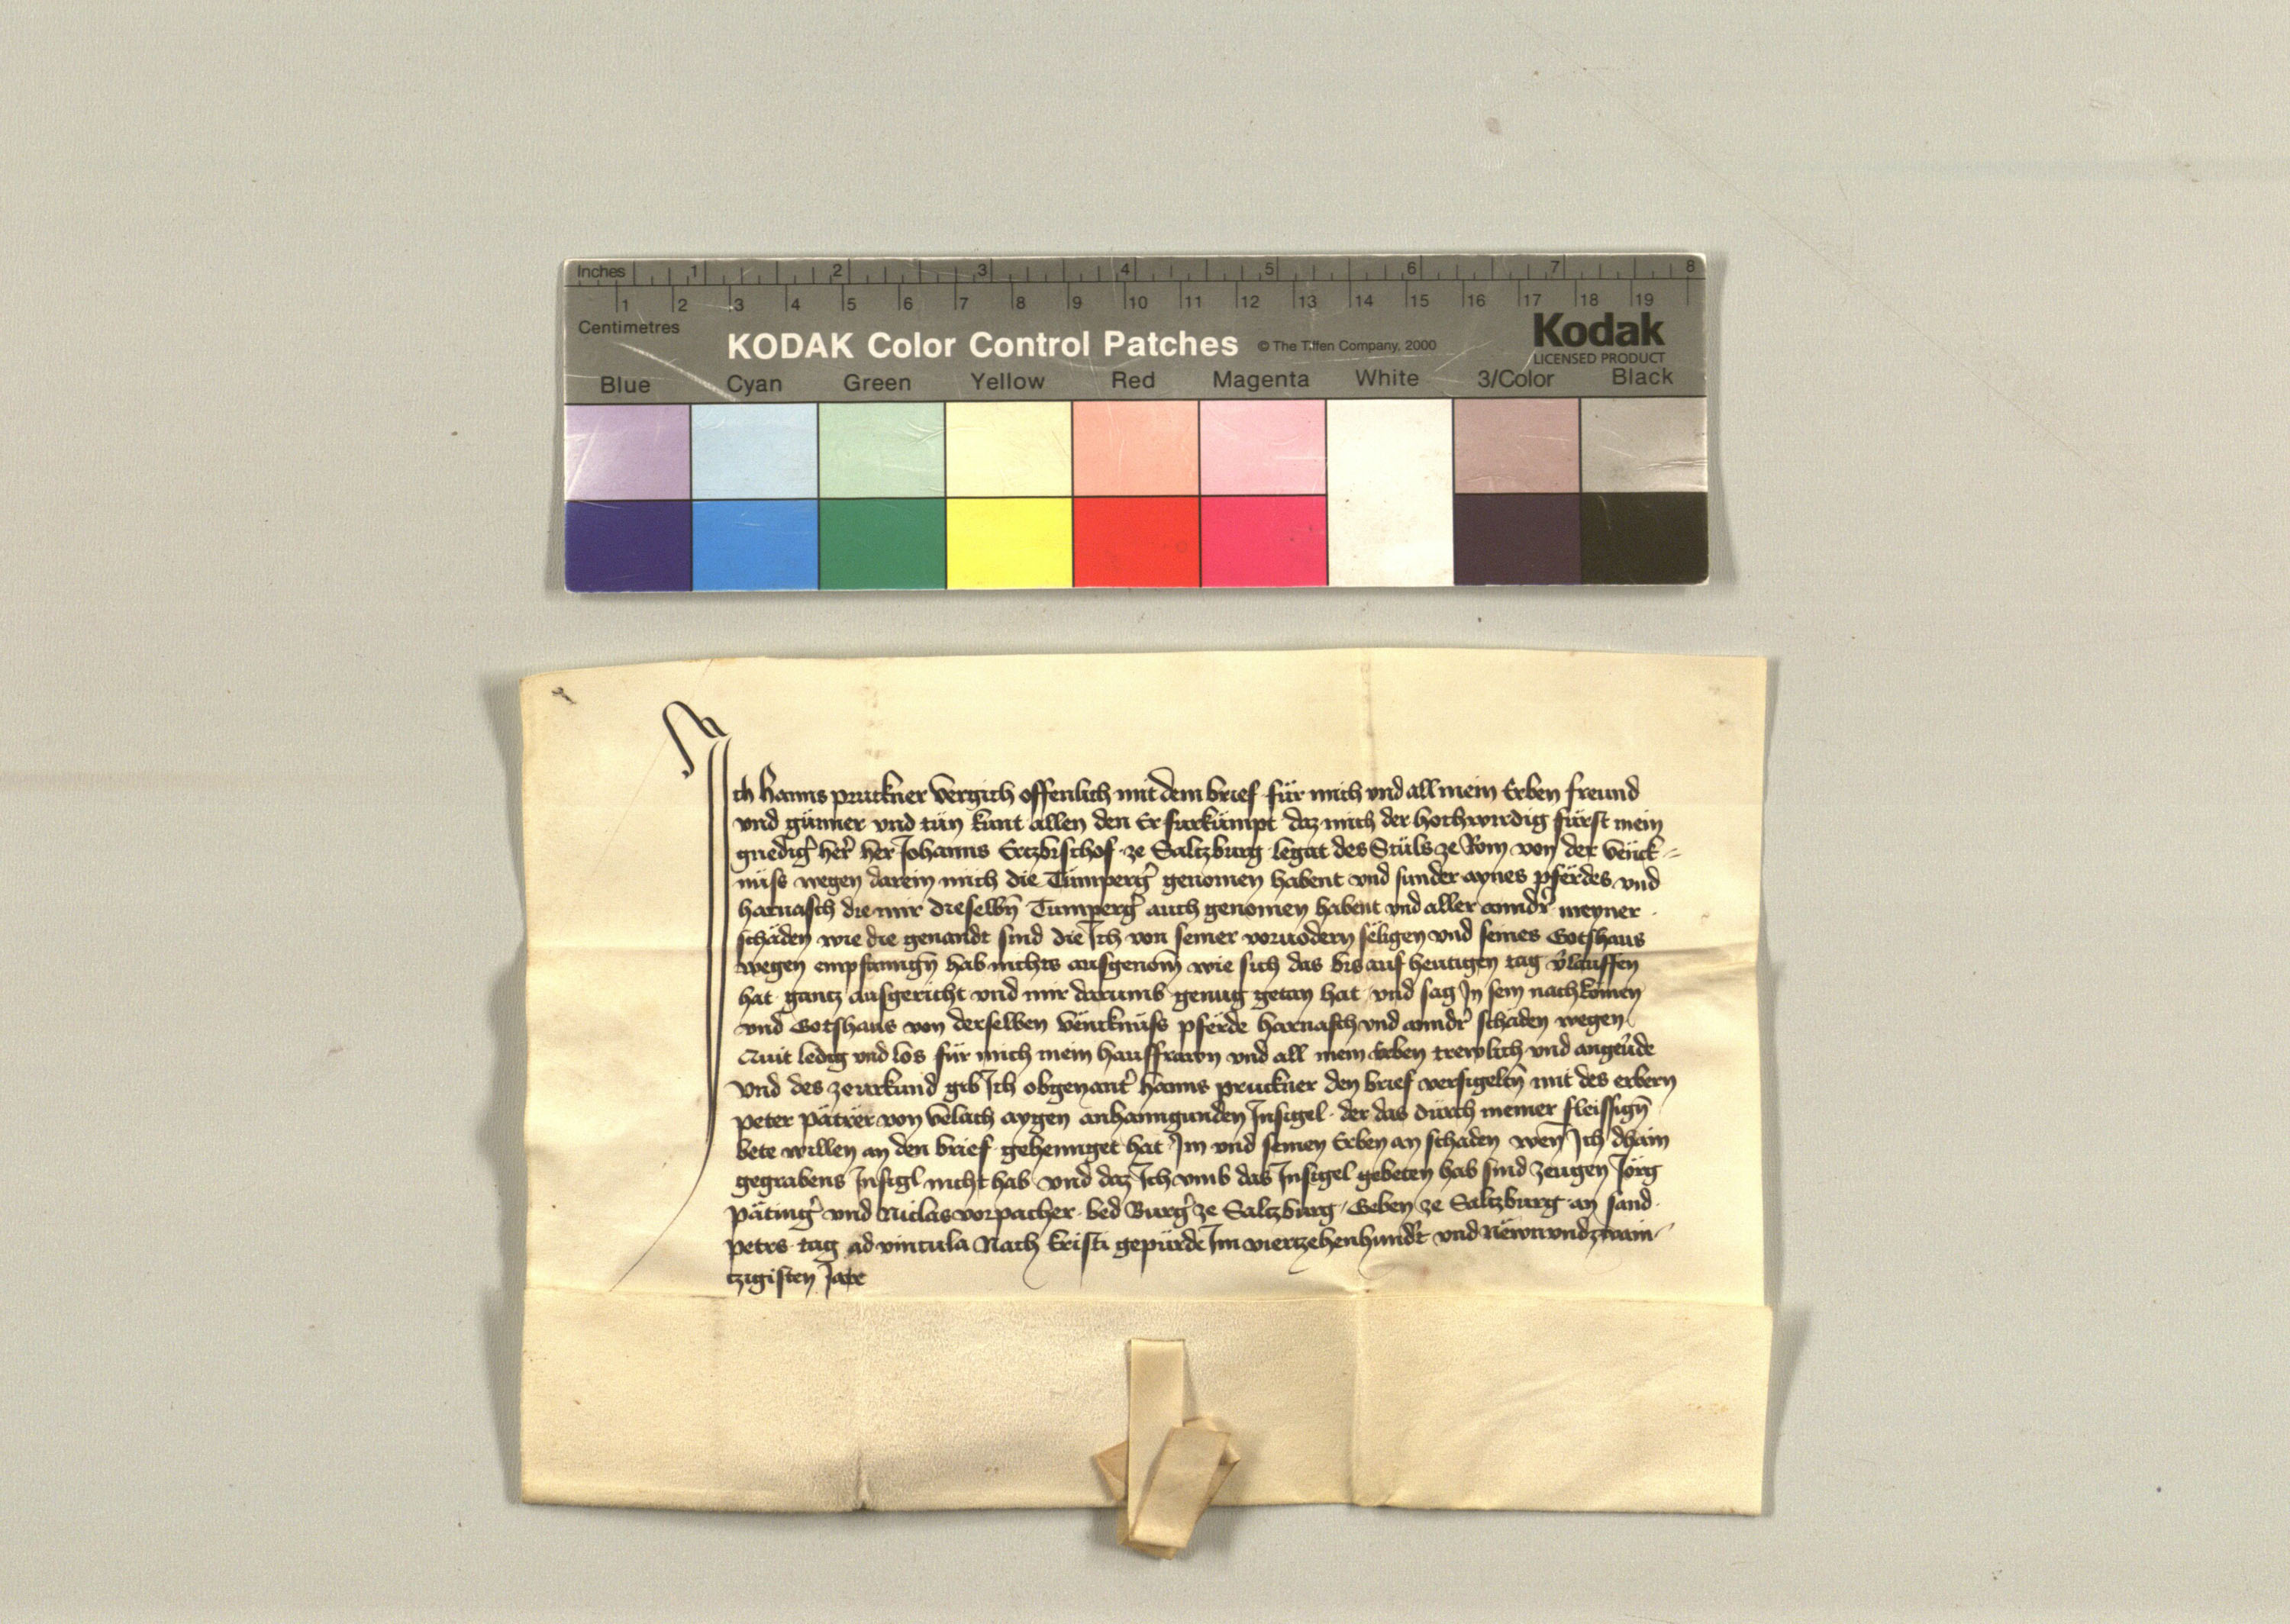 Inches 1 2 3 4 5 6 7 8
1 2 3 4 5 6 7 8 9 10 11 12 13 14 15 16 17 18 19
Centimetres
KODAK Color Control Patches © The Tiffen Company, 2000 Kodak
LICENSED PRODUCT
Blue Cyan Green Yellow Red Magenta White 3/Color Black
Ich Hanns pruckner vergich offenlich mit dem brief für mich vnd all mein Erben freund
vnd günner vnd tün kunt allen den Er furkümpt daz mich der hochwirdig fürst mein
gnedigʼ herʼ her Johanns Ertzbischof ze Saltzburg legat des Stüls ze Rom von der venck=
nüss wegen darein mich die Tümpergʼ genomen habent vnd sunder aynes pferdes vnd
harnasch die mir dieselbn̄ Tumpergʼ auch genomen habent vnd aller anndrʼ meyner
schäden wie die genandt sind die Ich von seiner voruodern seligen vnd seines Gotshaus
wegen empfanngn̄ hab nichts ausgenom̄ wie sich das bis auf heutigen tag v̓lauffen
hat gantz ausgericht vnd mir darumb genug getan hat vnd sag In sein nachkomen
vnd Gotshaus von derselben venknüss pferde harnasch vnd anndrʼ schaden wegen
Quit ledig vnd los für mich mein hausfrawn vnd all mein Erben trewlich vnd angeuʼde
Vnd des ze vrkund gib Ich obgenantʼ hanns pruckner den brief versigeltn̄ mit des erbern
peter pätrer von velach aygen anhanngunden Insigel der das durch meiner fleissign̄
bete willen an den brief gehennget hat Im vnd seinen Erben an schaden wen̄ Ich dhain
gegrabens Insigl nicht hab vnd daz Ich vmb das Insigel gebeten hab sind zeugen Jörg
pätingʼ vnd Niclas vorpacher bed Burgʼ ze Saltzburg Geben ze Saltzburg an sand
peters tag ad vincula Nach kristi gepürde Im viertzehenhundʼt vnd Newnvndzwain=
tzigisten Jare